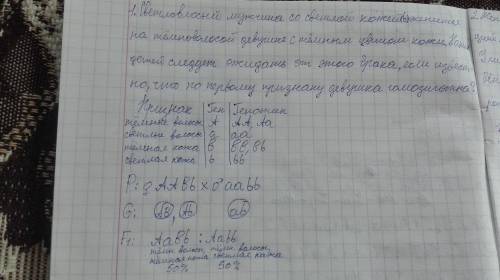 1. Светловолосый мужчина со светлой кожей женится
на тёмноволосой девушке с тёмным цветом кожи. Каких
детей следует ожидать от этого брака, если извест
но, что по первому признаку девушка гомозиготна?
Признак | Ген | Генотип
тёмные волосы | А | АА, Аа
светлые волосы | а | аа
тёмная кожа | В | ВВ, Вb
светлая кожа | b | bb
P: ♀ AABb × ♂ aabb
G: AB, Ab ab
F₁: AaBb : Aabb
тёмн. волосы, тёмн. волосы,
тёмная кожа светлая кожа
50% 50%
2.